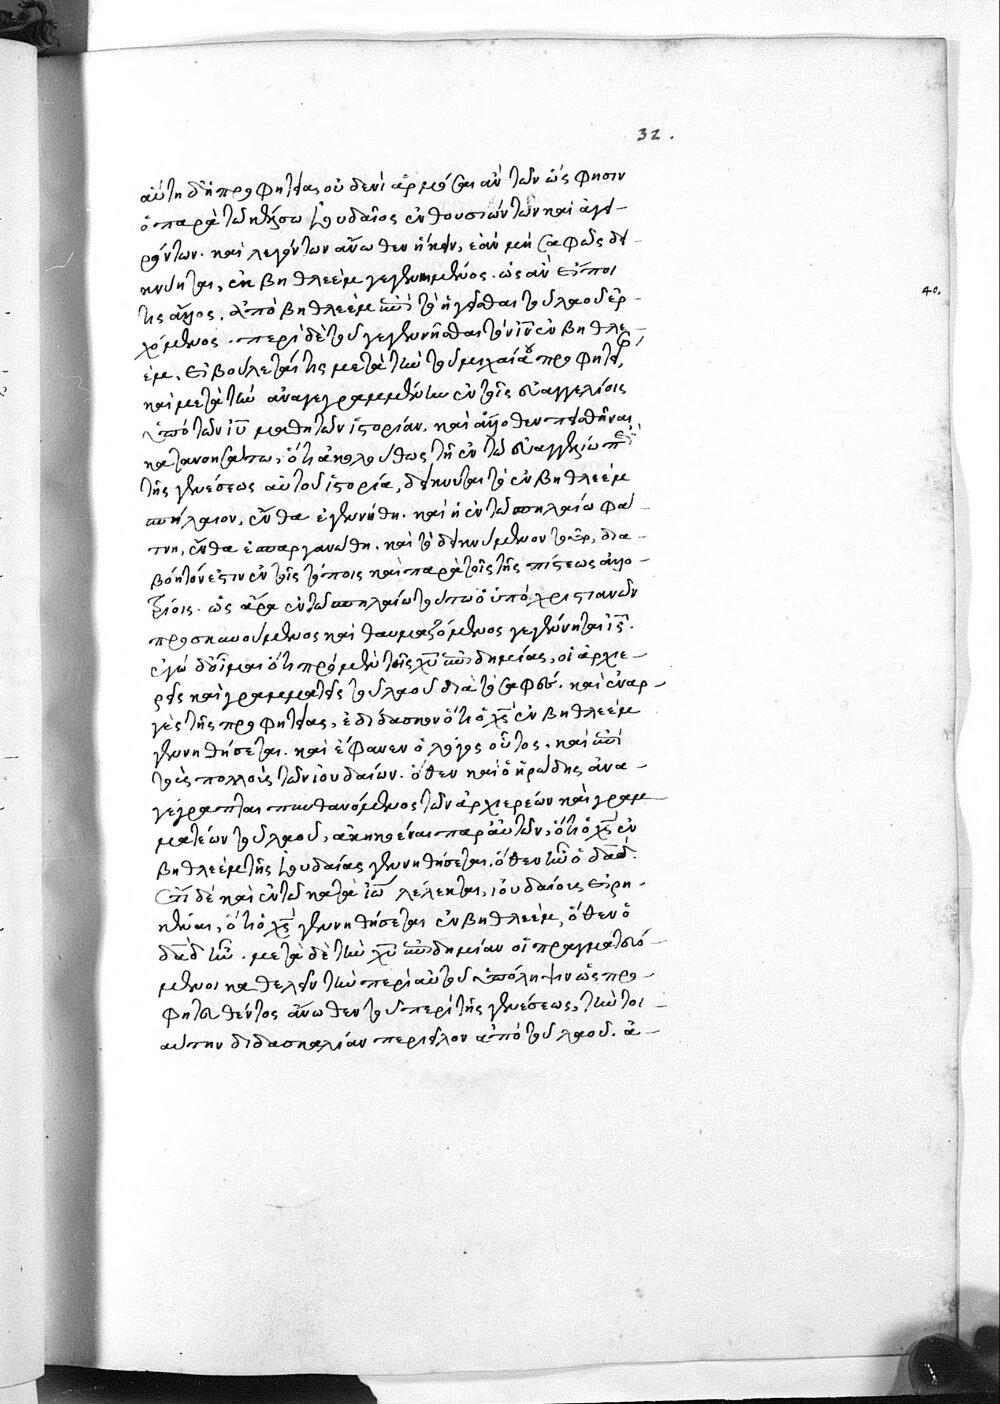 32.
αὕτη δὴ προφητείας οὐδενὶ ἁρμόσαι ἂν τῶν ὥς φησιν
ὁ παρὰ τῶ κέλσω ἰουδαῖος ἐνθουσιώντων καὶ ἀγει-
ρόντων. καὶ λεγόντων ἄνωθεν ἥκειν, ἐὰν μὴ σαφῶς δεί-
κνυηται, ἐκ βηθλεὲμ γεγεννημένος. ὡς ἂν εἴποι
τις ἄλλος, ἀπὸ βηθλεὲμ ἐπὶ τὸ ἡγεῖσθαι τοῦ λαοῦ ἐρ-
χόμενος. περὶ δὲ τοῦ γεγεννῆσθαι τὸν ἰν̅ ἐν βηθλε-
έμ, εἰ βούλεταί τις μετὰ τὴν τοῦ μιχαίου προφητείαν,
καὶ μετὰ τὴν ἀναγεγραμμένην ἐν τοῖς εὐαγγελίοις
ὑπὸ τῶν ἰυ̅ μαθητῶν ἱστορίαν, καὶ ἄλλοθεν πεισθῆναι
κατανοησάτω, ὅτι ἀκολούθως τῆ ἐν τῶ εὐαγγελίω περὶ
τῆς γενέσεως αὐτοῦ ἱστορία, δείκνυται τὸ ἐν βηθλεὲμ
σπήλαιον, ἔνθα ἐγεννήθη. καὶ ἡ ἐν τῶ σπηλαίω φά-
τνη, ἔνθα ἐσπαργανώθη. καὶ τὸ δεικνύμενον τοῦτο, δια-
βόητόν ἐστιν ἐν τοῖς τόποις καὶ παρὰ τοῖς τῆς πίστεως ἀλλο-
τρίοις. ὡς ἄρα ἐν τῶ σπηλαίω τούτω ὁ ὑπὸ χριστιανῶν
προσκυνούμενος καὶ θαυμαζόμενος γεγέννηται ἰς̅.
ἐγὼ δ' οἶμαι ὅτι πρὸ μὲν τῆς χυ̅ ἐπιδημίας, οἱ ἀρχιε-
ρεῖς καὶ γραμματεῖς τοῦ λαοῦ διὰ τὸ σαφὲς. καὶ ἐναρ-
γὲς τῆς προφητείας, ἐδίδασκον ὅτι ὁ χς̅ ἐν βηθλεὲμ
γεννηθήσεται. καὶ ἔφανεν ὁ λόγος οὗτος. καὶ ἐπὶ
τοὺς πολλοὺς τῶν ἰουδαίων. ὅθεν καὶ ὁ ἡρώδης ἀνα-
γέγραπται πυνθανόμενος τῶν ἀρχιερέων καὶ γραμ-
ματέων τοῦ λαοῦ, ἀκηκοέναι παρ' αὐτῶν, ὅτι ὁ χς̅ ἐν
βηθλεὲμ τῆς ἰουδαίας γεννηθήσεται, ὅθεν ἦν ὁ δαδ̅.
ἔτι δὲ καὶ ἐν τῶ κατὰ ἰω̅ λέλεκται, ἰουδαίους εἰρη-
κέναι, ὅτι ὁ χς̅ γεννηθήσεται ἐν βηθλεέμ, ὅθεν ὁ
δαδ̅ ἦν. μετὰ δὲ τὴν χυ̅ ἐπιδημίαν οἱ πραγματευό-
μενοι καθελεῖν τὴν περὶ αὐτοῦ ὑπόληψιν ὡς προ-
φητευθέντος ἄνωθεν τοῦ περὶ τῆς γενέσεως, τὴν τοι-
αύτην διδασκαλίαν περιεῖλον ἀπὸ τοῦ λαοῦ. ἀ-
40.